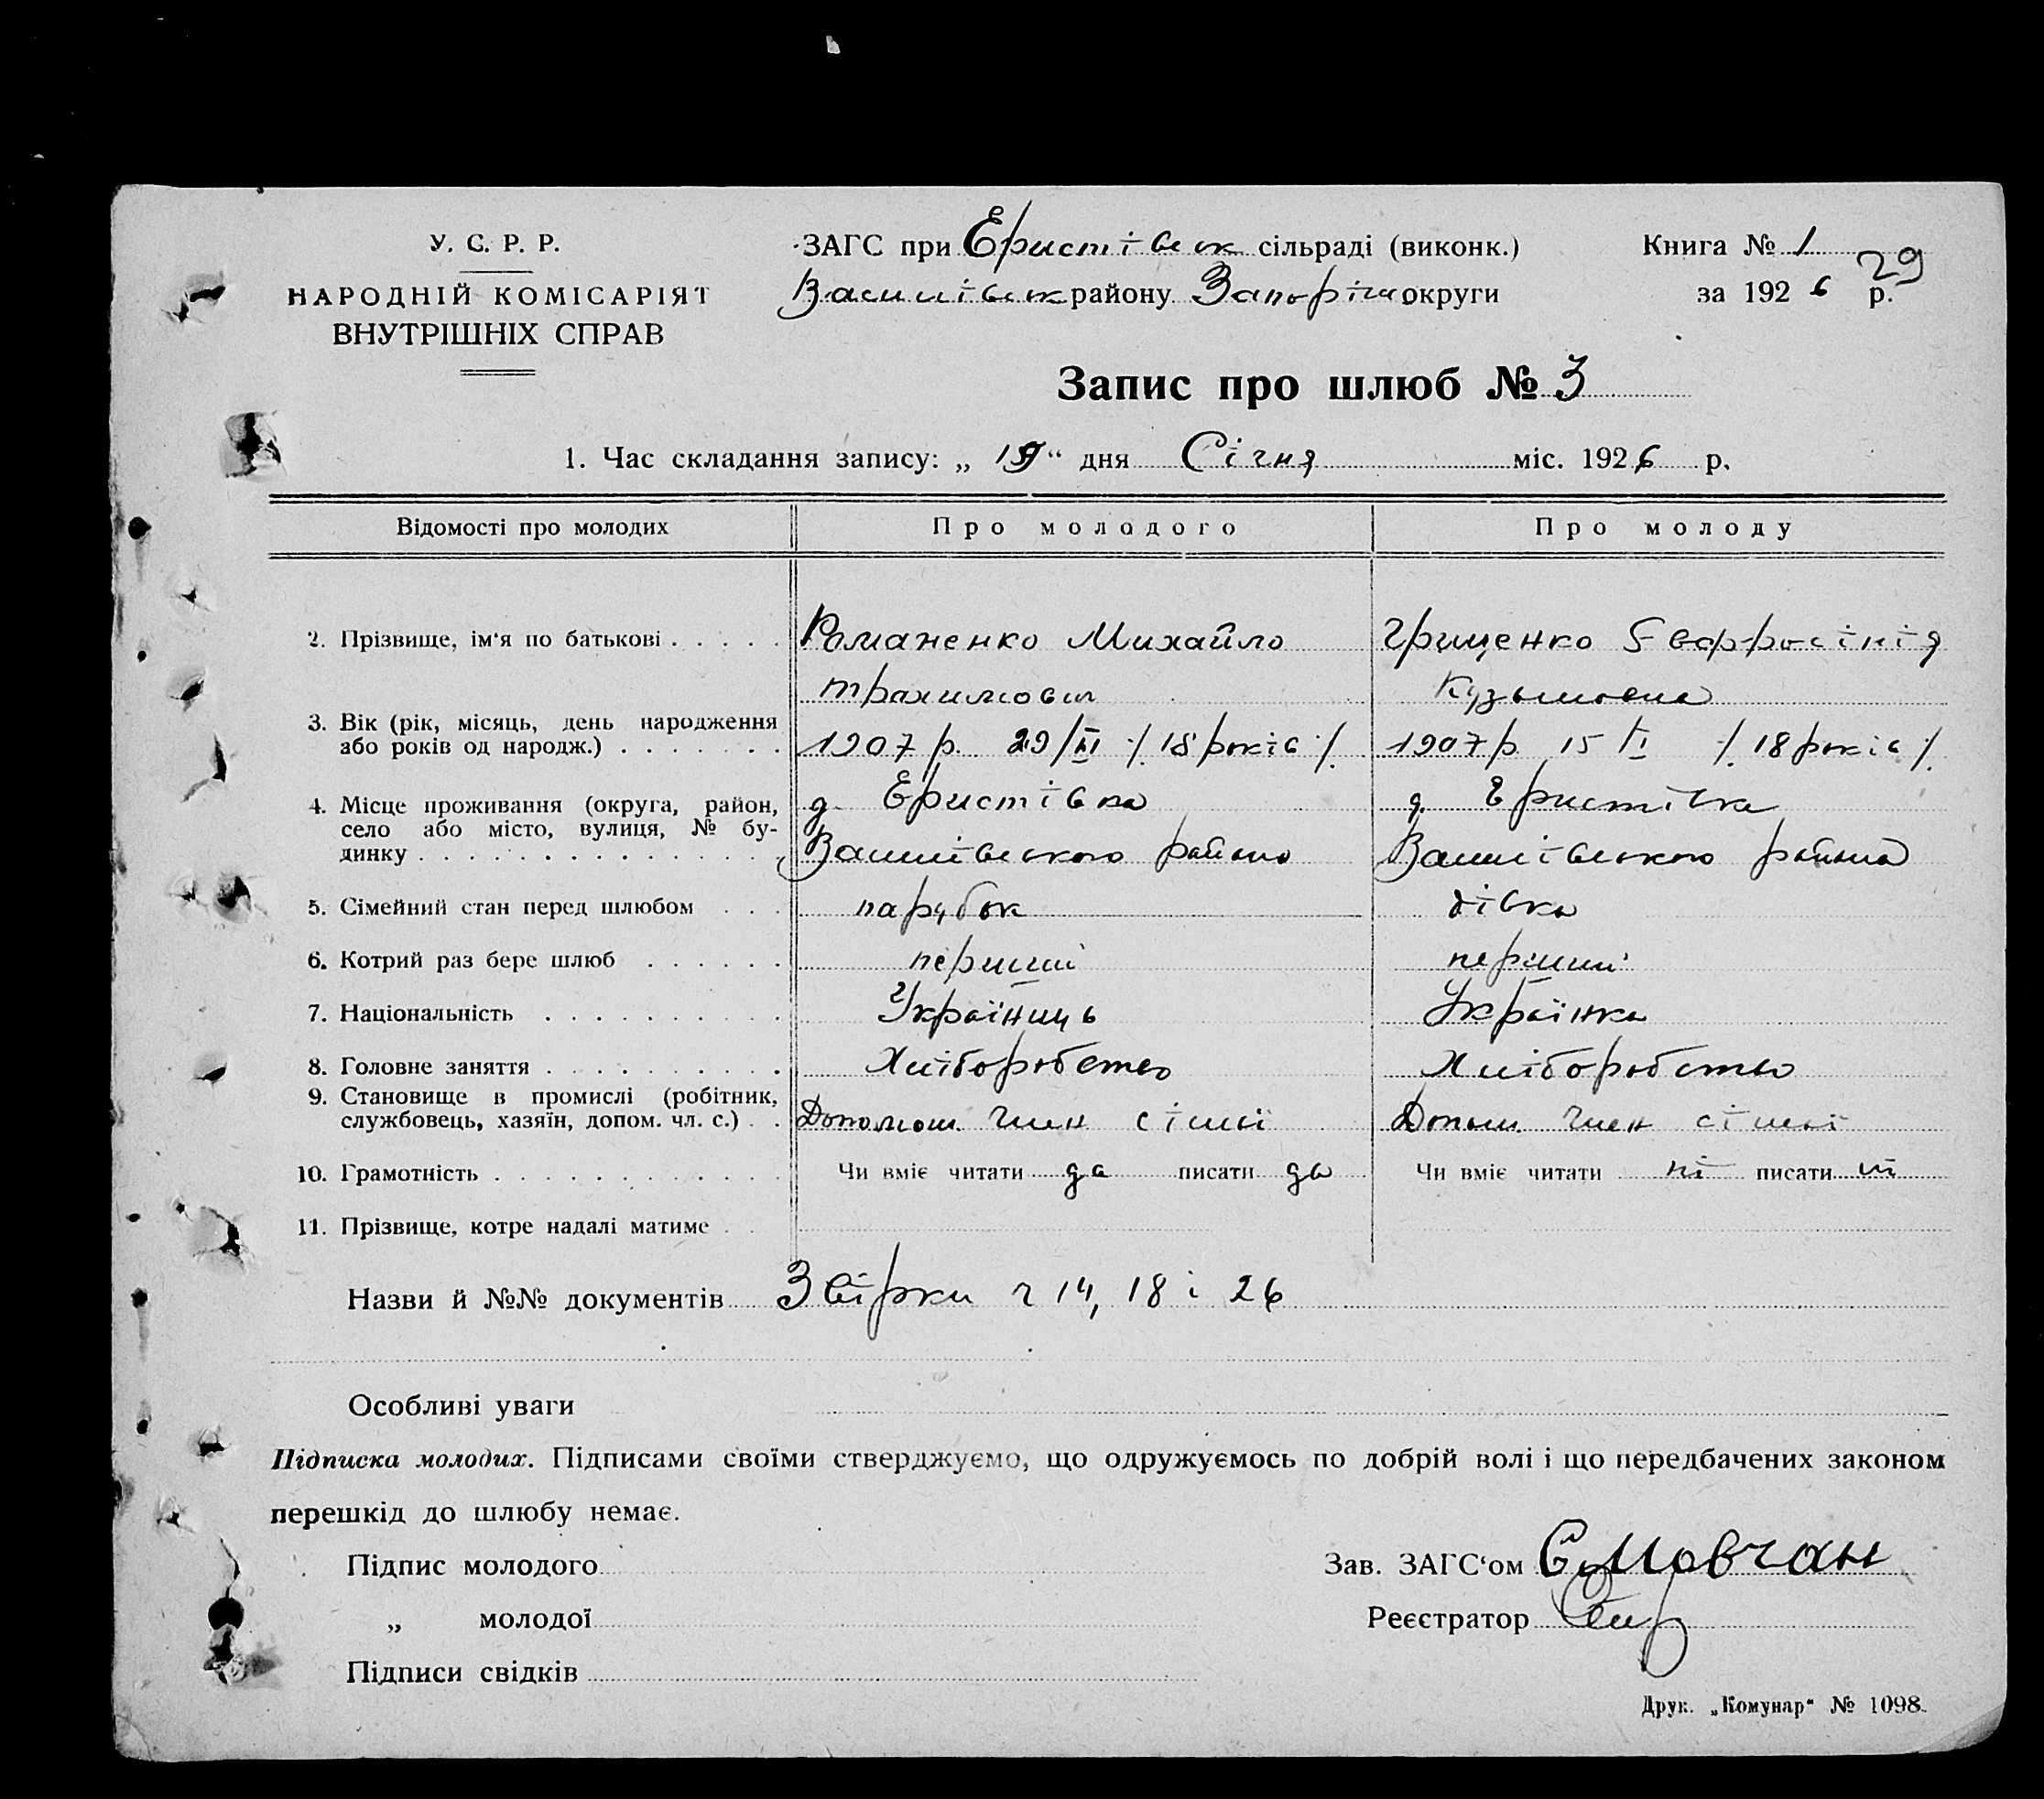 У. С. Р. Р.
НАРОДНІЙ КОМІСАРІЯТ
ВНУТРІШНІХ СПРАВ
ЗАГС при Еристівськ сільраді (виконк.)
Василівськ району Запоріж округи
Книга № 1
29
за 1926 р.
Запис про шлюб № 3
1. Час складання запису: „ 19 “ дня Січня міс. 1926 р.
Відомості про молодих Про молодого Про молоду
2. Прізвище, ім‘я по батькові . . . . . Романенко Михайло Грищенко Евфросінія
Трахимович Кузьмовна
3. Вік (рік, місяць, день народження
або років од народж.) . . . . . . . 1907 р. 29/XI ·/. 18 років ·/. 1907 р 15/I ·/. 18 років ·/.
4. Місце проживання (округа, район, д. Еристівка д. Еристівка
село або місто, вулиця, № бу-
динку . . . . . . . . . . . . . . . Василівського района Василівського района
5. Сімейний стан перед шлюбом . . . парубок дівка
6. Котрий раз бере шлюб . . . . . . перший перший
7. Національність . . . . . . . . . . Українць Українка
8. Головне заняття . . . . . . . . . . Хліборобство Хліборобство
9. Становище в промислі (робітник,
службовець, хазяїн, допом. чл. с.) . . Допомаш. член сімьї Допом. член сімьї
10. Грамотність . . . . . . . . . . . . Чи вміє читати да писати да Чи вміє читати ні писати ні
11. Прізвище, котре надалі матиме . .
Назви й №№ документів Звірки ч 14, 18 і 26
Особливі уваги
Підписка молодих. Підписами своїми стверджуємо, що одружуємось по добрій волі і що передбачених законом
перешкід до шлюбу немає.
Підпис молодого Зав. ЗАГС‘ом Є Мовчан
„ молодої Реєстратор
Підписи свідків
Друк. „Комунар“ № 1098.